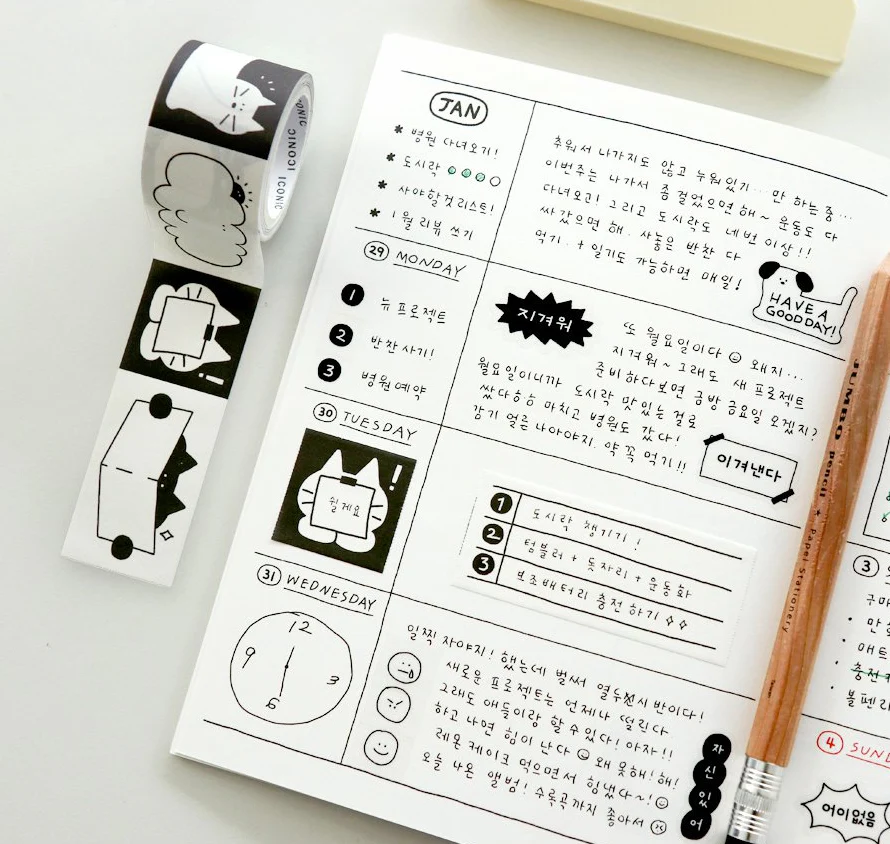 ICONIC
ICONIC
ICONIC
JAN
* 병원 다녀오기!
* 도시락
* 사야할것리스트!
* 1월 리뷰 쓰기
추워서 나가지도 않고 누워있기... 만 하는 중...
이번주는 나가서 좀 걸었으면 해~ 운동도 다
다녀오고! 그리고 도시락도 네번 이상!!
싸갔으면 해. 사놓은 반찬 다
먹기. + 일기도 가능하면 매일!
HAVE A
GOOD DAY!
29 MONDAY
1 뉴프로젝트
2 반찬사기!
3 병원예약
지겨워
또 월요일이다 왜지...
지겨워~ 그래도 새 프로젝트
준비하다보면 금방 금요일 오겠지?
월요일이니까 도시락 맛있는 걸로
쌌다 마치고 병원도 갔다!
감기 얼른 나아야지. 약 꼭 먹기!!
이겨낸다
30 TUESDAY
!
쉴게요
1 도시락 챙기기!
2 텀블러 + 돗자리 + 운동화
3 보조배터리 충전 하기
31 WEDNESDAY
12
9
3
6
일찍 자야지! 했는데 벌써 열두시 반이다!
새로운 프로젝트는 언제나 떨린다
그래도 애들이랑 할 수 있다! 아자!!
하고 나면 힘이 난다 왜 못해! 해!
레몬 케이크 먹으면서 힘냈다~!
오늘 나온 앨범! 수록곡까지 좋아서
자
신
있
어
JUMBO pencil + Papel Stationery
3
구마
· 만
· 매트
· 충전
· 볼펜
4 SUND
어이없음